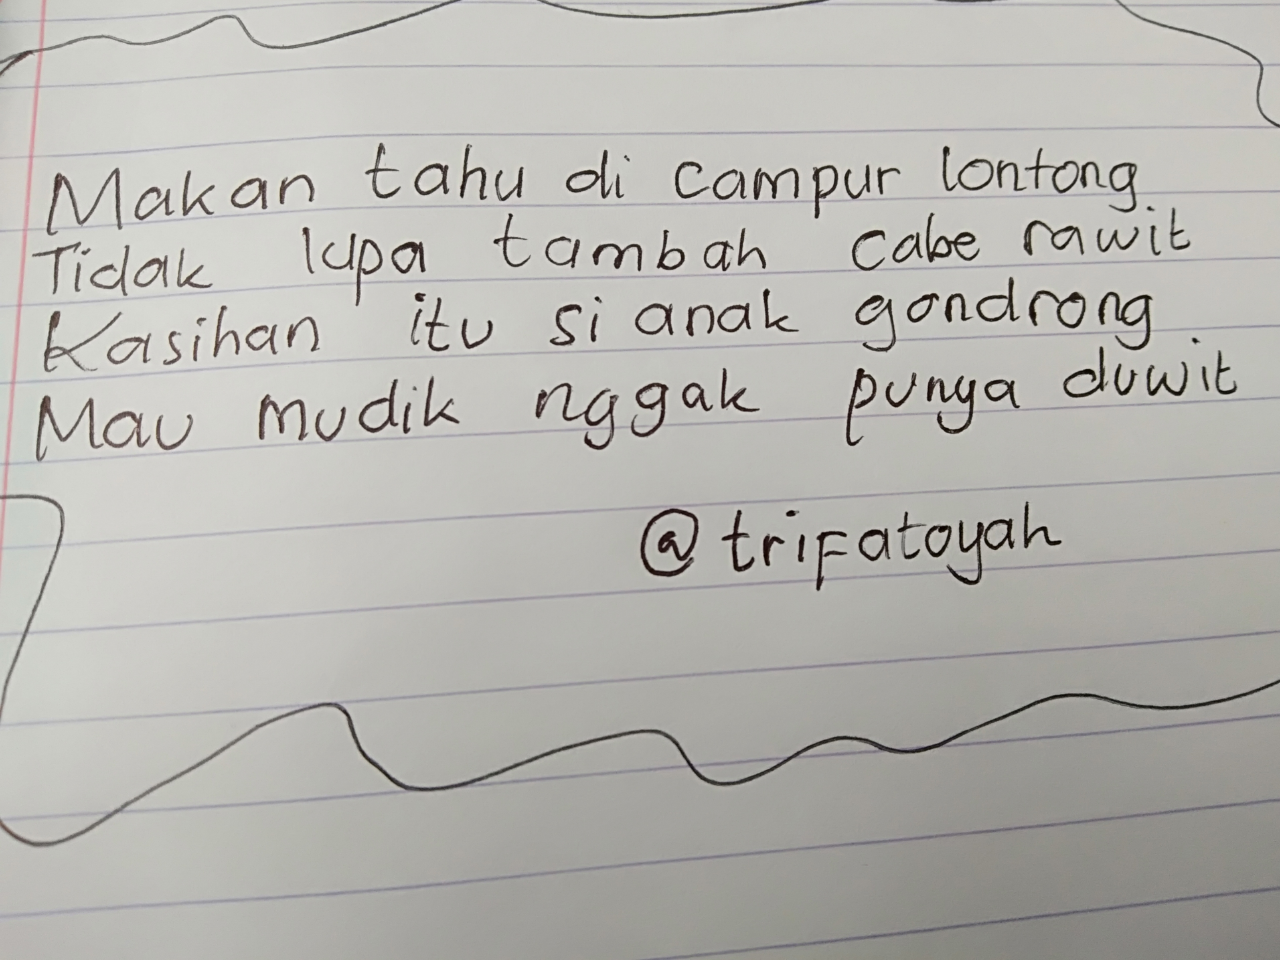 Makan tahu di campur lontong
Tidak lupa tambah cabe rawit
Kasihan itu si anak gondrong
Mau mudik nggak punya duwit
@trifatoyah